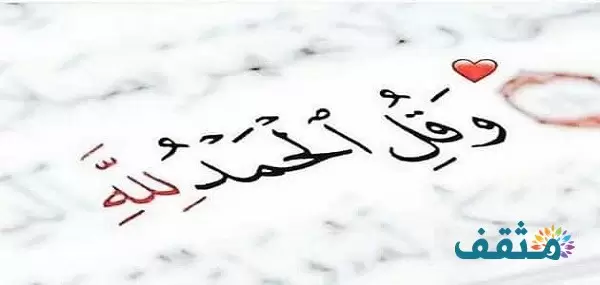 وَقُلِ الْحَمْدُ لِلَّهِ
مثقف